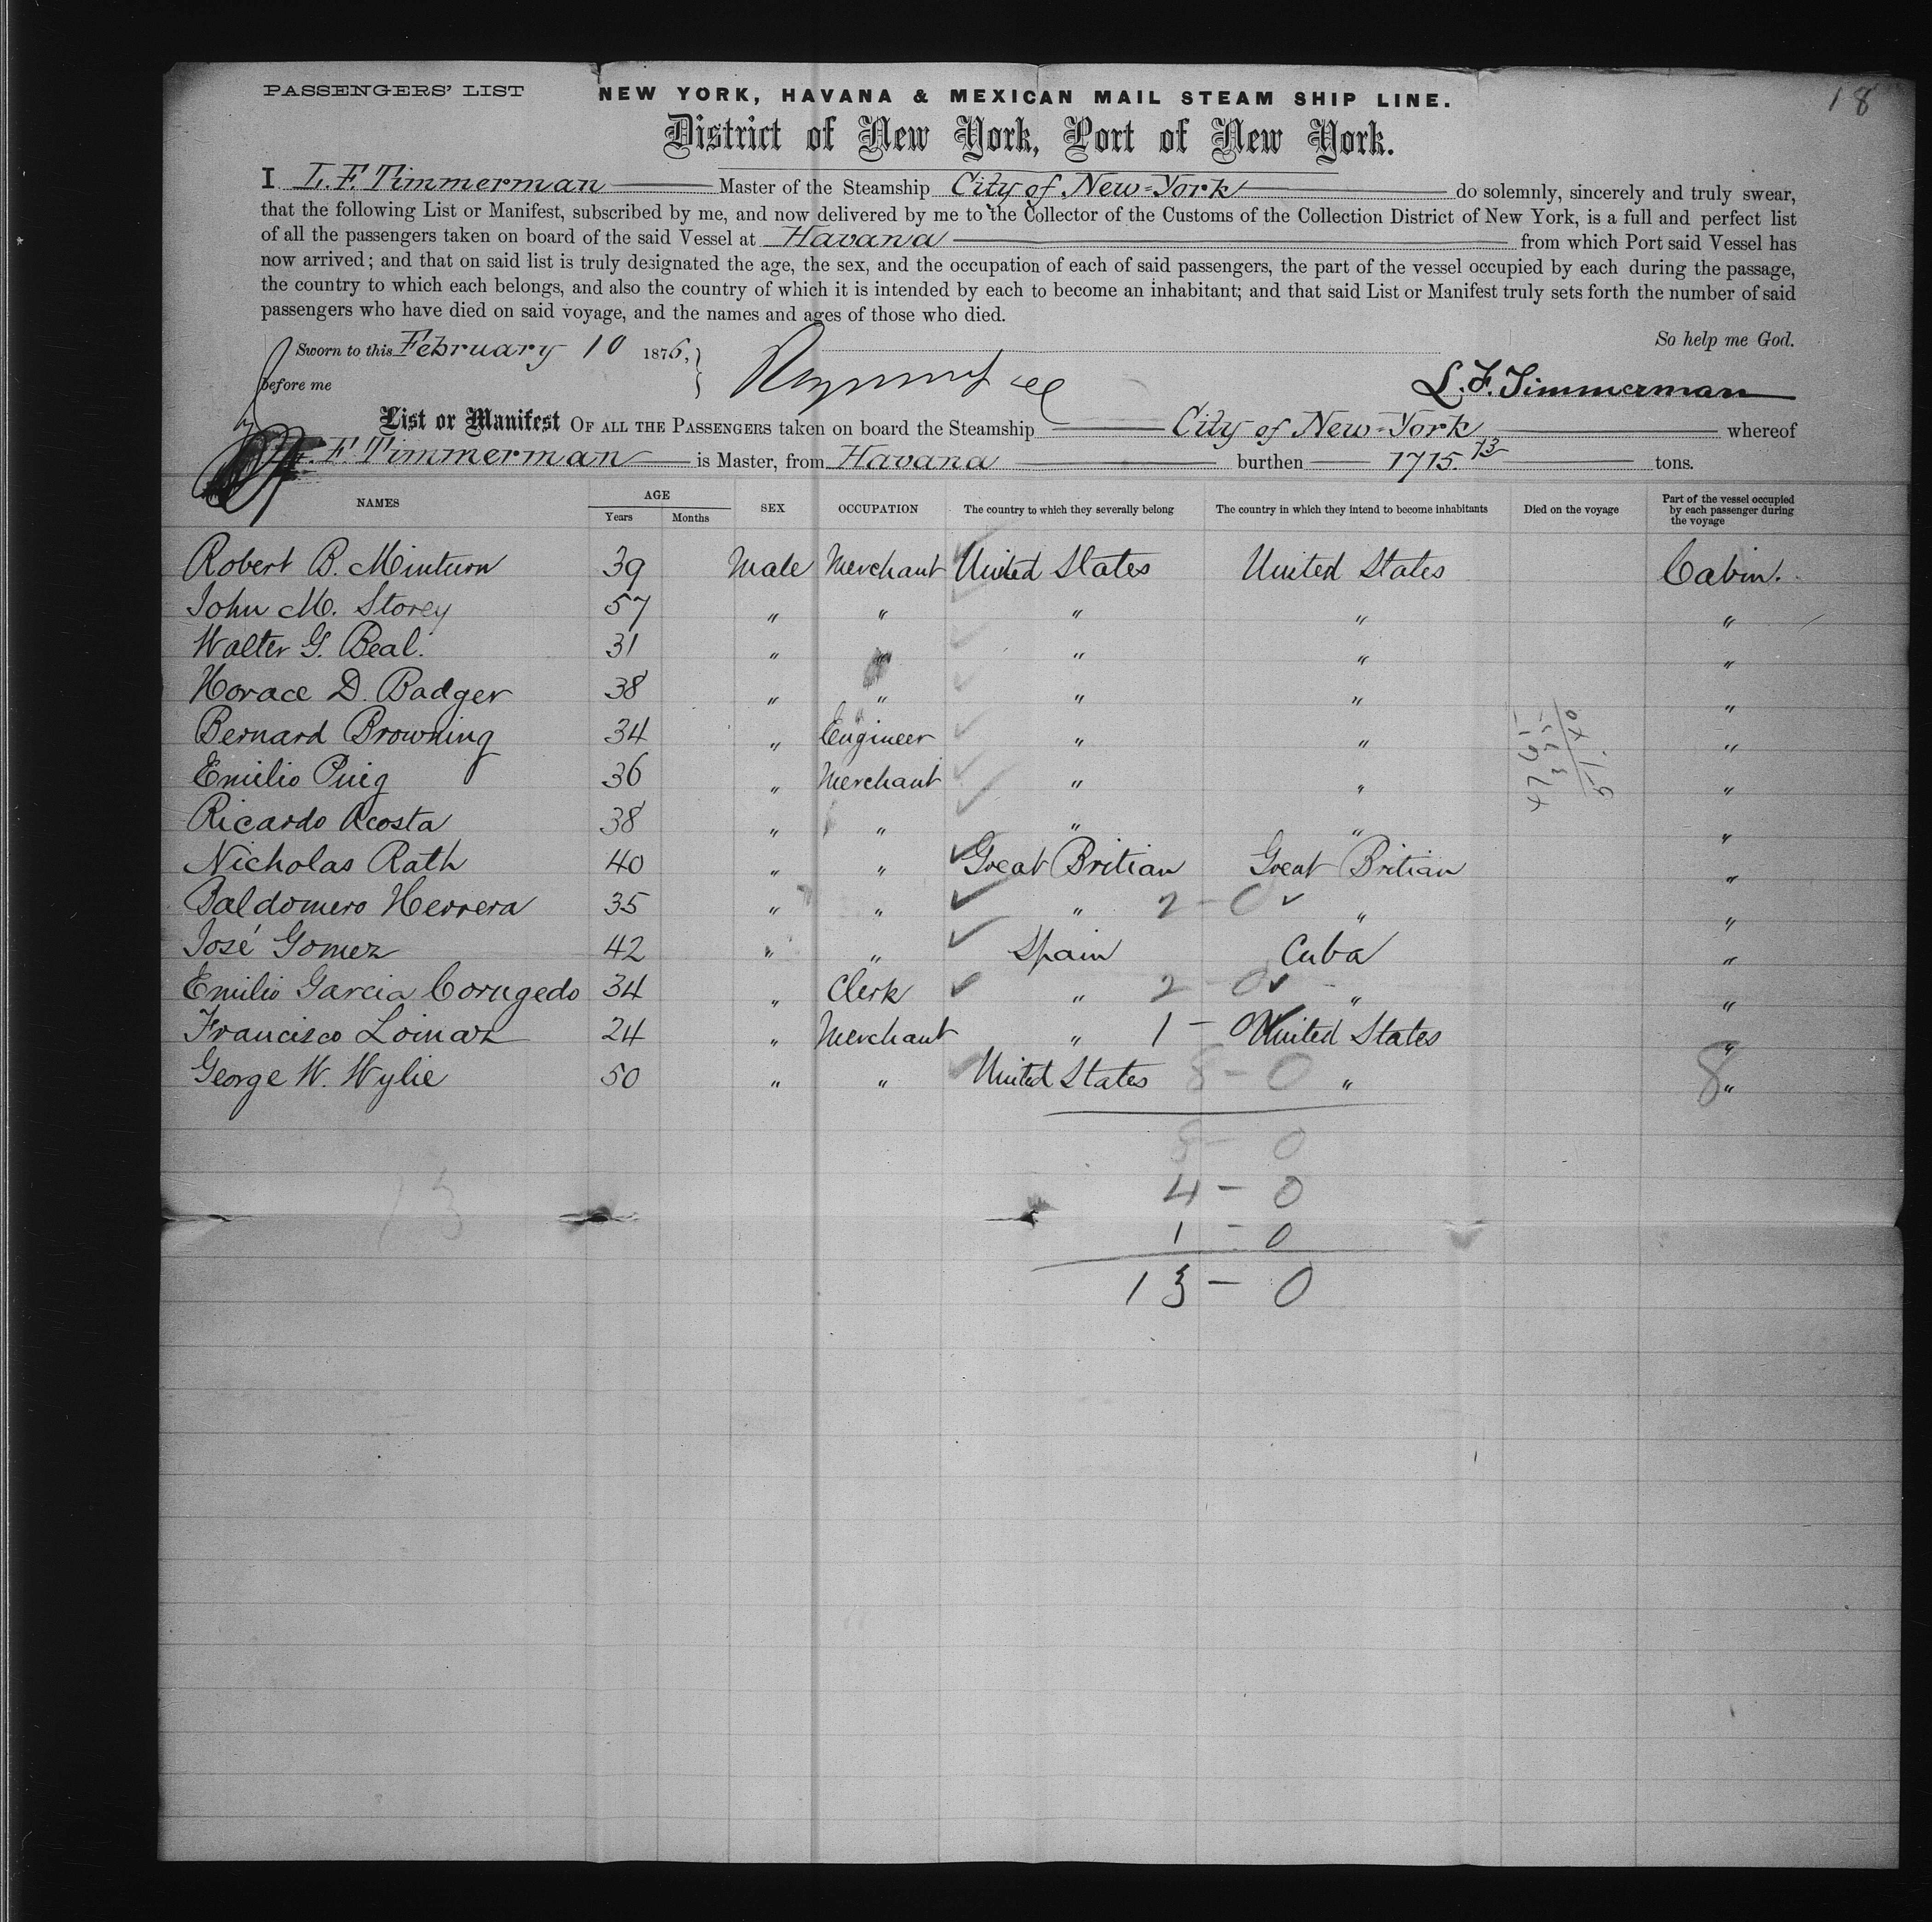 18
PASSENGERS' LIST
NEW YORK, HAVANA & MEXICAN MAIL STEAM SHIP LINE.
District of New York, Port of New York.
I L. F. Timmerman Master of the Steamship City of New=York do solemnly, sincerely and truly swear,
that the following List or Manifest, subscribed by me, and now delivered by me to the Collector of the Customs of the Collection District of New York, is a full and perfect list
of all the passengers taken on board of the said Vessel at Havana from which Port said Vessel has
now arrived; and that on said list is truly designated the age, the sex, and the occupation of each of said passengers, the part of the vessel occupied by each during the passage,
the country to which each belongs, and also the country of which it is intended by each to become an inhabitant; and that said List or Manifest truly sets forth the number of said
passengers who have died on said voyage, and the names and ages of those who died.
So help me God.
Sworn to this February 10 1876,
before me
L. F. Timmerman
List or Manifest OF ALL THE PASSENGERS taken on board the Steamship City of New=York whereof
F. Timmerman is Master, from Havana burthen 1715.73 tons.
NAMES AGE Years Months SEX OCCUPATION The country to which they severally belong The country in which they intend to become inhabitants Died on the voyage Part of the vessel occupied by each passenger during the voyage
Robert B. Minturn 39 Male Merchant United States United States Cabin.
John M. Storey 57 " " " " "
Walter G. Beal. 31 " " " " "
Horace D. Badger 38 " " " " "
Bernard Browning 34 " Engineer " " "
Emilio Puig 36 " Merchant " " "
Ricardo Acosta 38 " " " " "
Nicholas Rath 40 " " Great Britian Great Britian "
Baldomero Herrera 35 " " " 2 - 0 " "
José Gomez 42 " " Spain Cuba "
Emilio Garcia Corugedo 34 " Clerk " 2 - 0 " "
Francisco Loinaz 24 " Merchant " 1 - 0 United States "
George W. Wylie 50 " " United States 8 - 0 " " 8
8 - 0
4 - 0
1 - 0
13 - 0
13